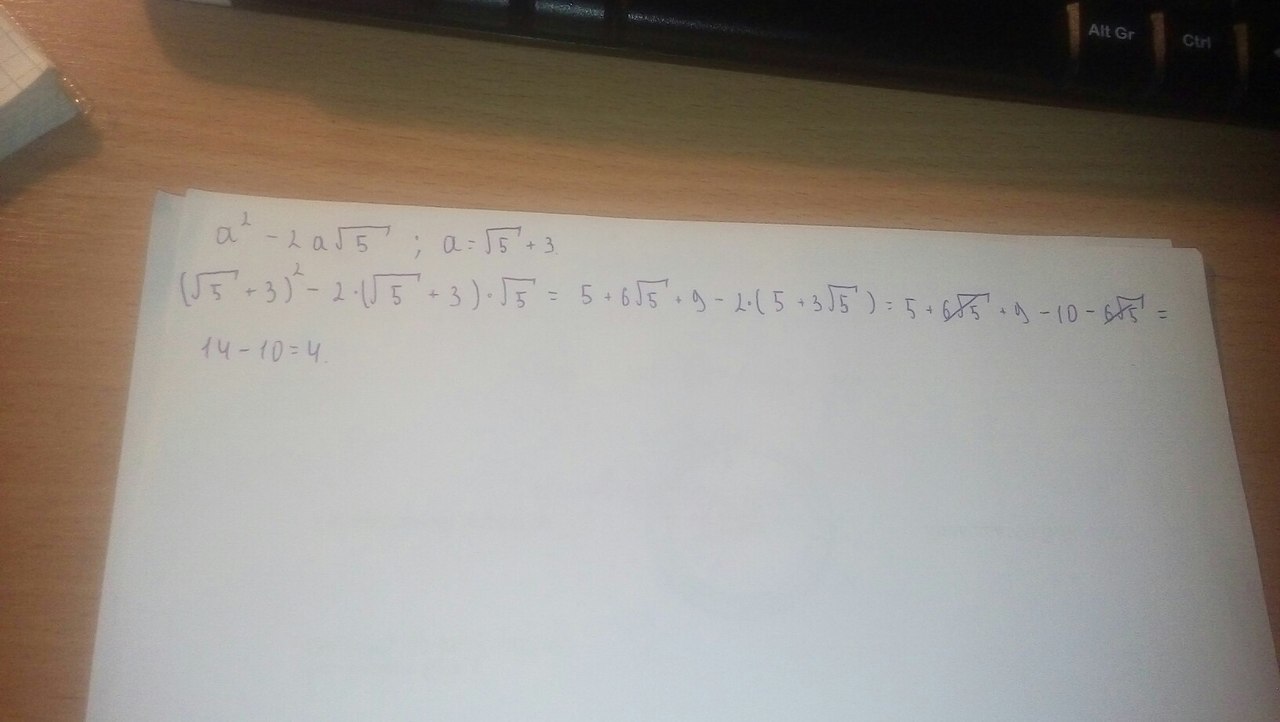 Alt Gr Ctrl
a² - 2a√5 ; a = √5 + 3.
(√5 + 3)² - 2·(√5 + 3)·√5 = 5 + 6√5 + 9 - 2·(5 + 3√5) = 5 + 6√5 + 9 - 10 - 6√5 =
14 - 10 = 4.